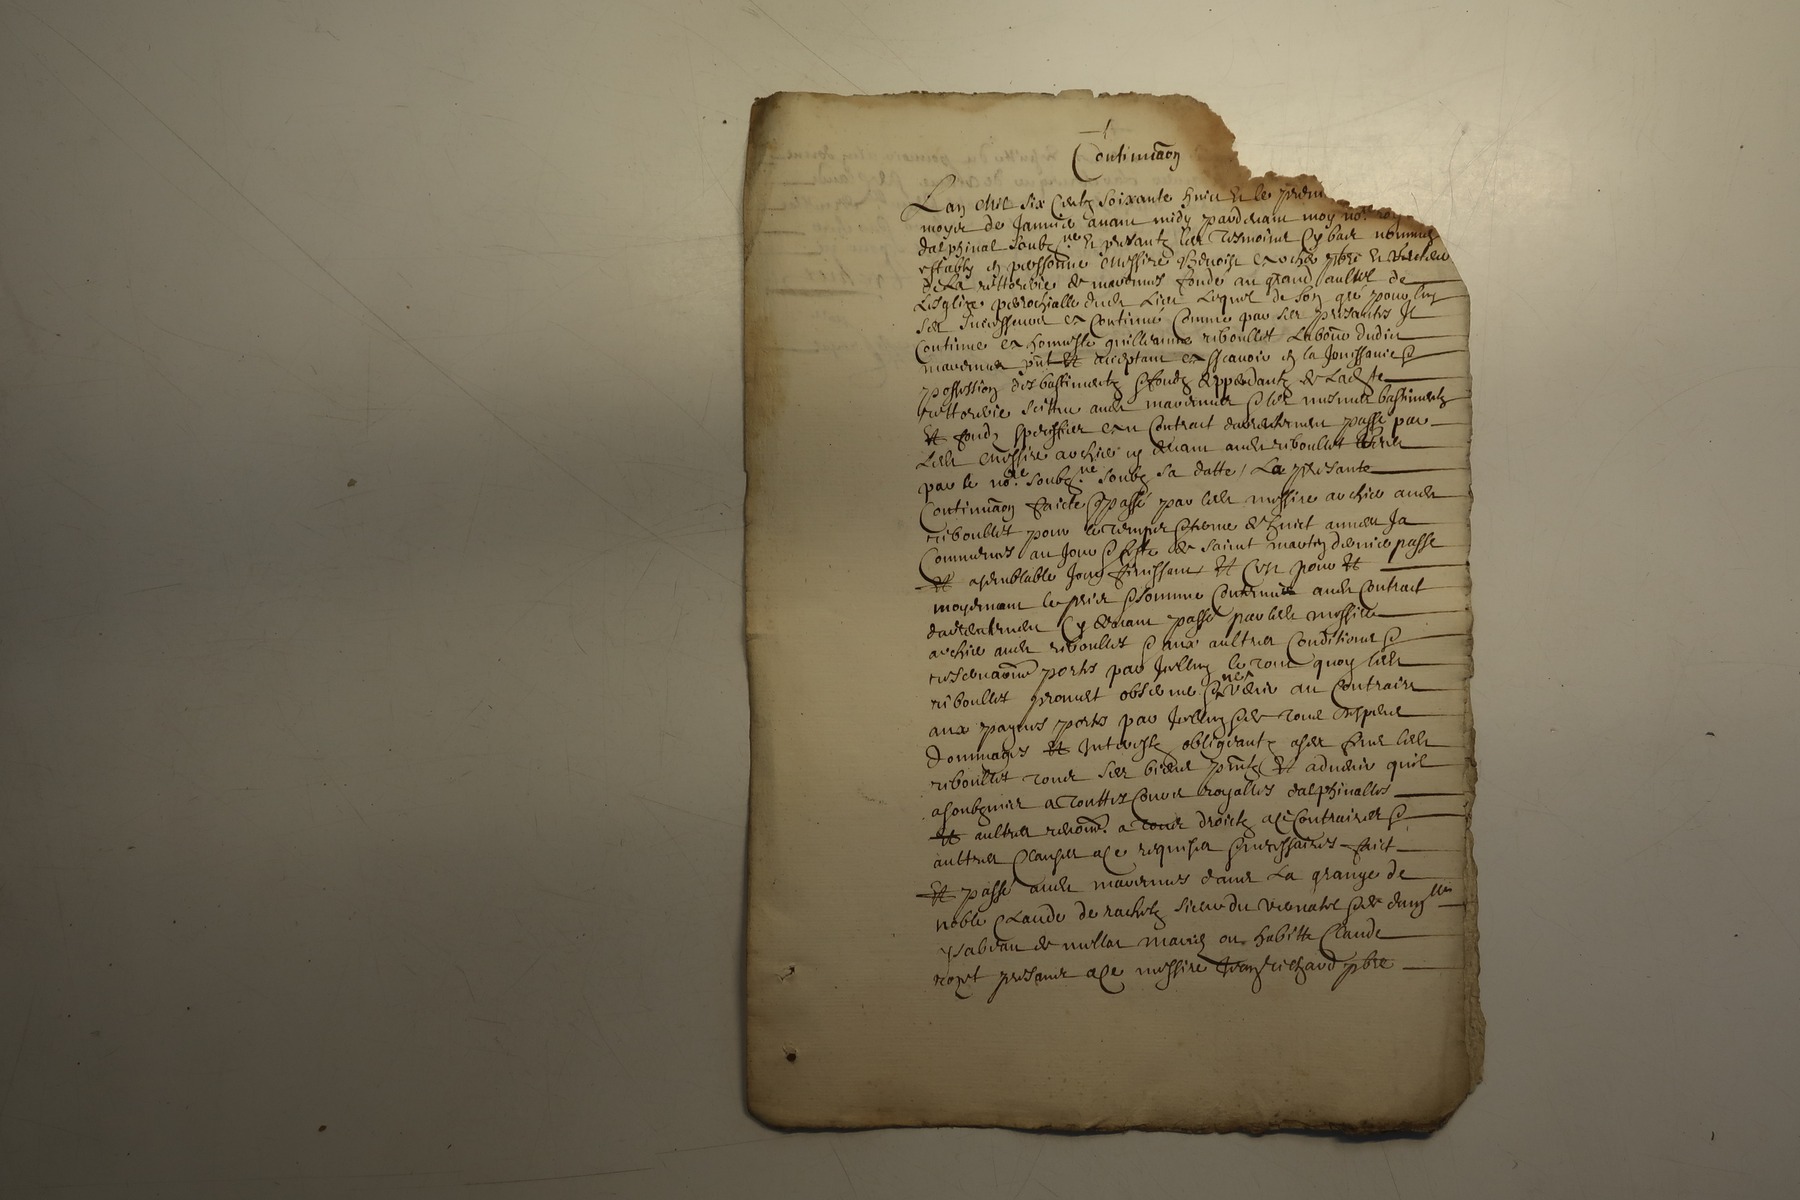 Continuãon
Lan Mil six Centz soixante huict Et le prem
moyes de Janvier avant midy pardevant moy no.re roy
dalphinal soubz.né Et presantz les tesmoins Cy bas nommes
estably en personne Messire Benoist archer pbre Et
de La rettorerie de mavernus fondé au grand aultel de
Lesglize parrochialle dudit Lieu Lequel de son gré pour luy
ses successeurs a Continué Comme par ses presantes Il
Continue a honneste guilleaume riboullet Labour dudit
pñt Et acceptant a scavoir en la Jouissance &
possession des bastimentz & fondz deppendantz de Ladite
rettorerie scittue audit & les mesmes bastimentz
Et fondz speciffies au Contract darrentement passé par
Ledit Messire archer cy devant audit riboullet
par le no.re soubz.né soubz sa datte / La presante
Continuãon faicte & passé par ledit messire archer audit
riboullet pour le temps & terme de huict annees Ja
Commences au Jour & feste de saint martin dernier passe
Et a semblable Jour finissant Et Cest pour Et
moyenant le prix & somme Contenue audit Contract
darrentement Cy devant passé par ledit messire
archer audit riboullet & aux aultres Conditions &
portes par Icelluy le tout quoy ledit
riboullet promet observer & ne venir au Contraire
aux peynes portes par Icelluy & de tous despens
Dommages Et Interestz obligeantz a ses fins ledit
riboullet tous ses biens pñtz Et advenir quil
a soubzmis a touttes Cours royalles dalphinalles
Et aultres renonce a tous droictz a ce Contraires &
aultres Clauses a ce requises & necessaires faict
Et passé audit mavernus dans La grange de
noble Claude de rachetz sieur du vernatel & de dam.lle
ysabeau de millat maries ou habitte Claude
royet presant a ce messire Jean richard pbre